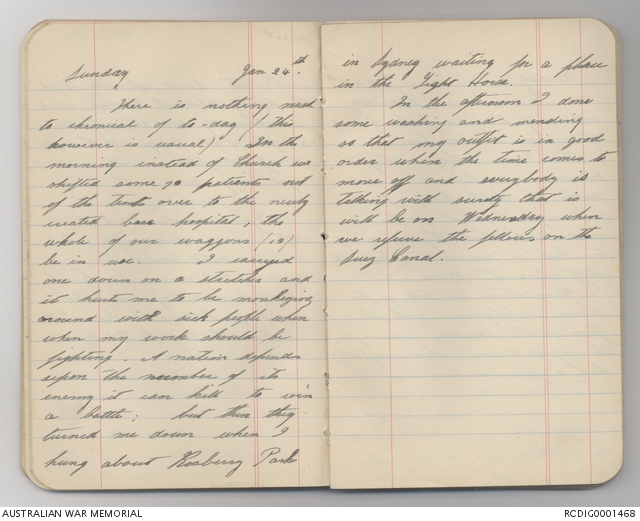 Sunday Jan 24th.
There is nothing much
to chronical of to-day (this
however is usual) In the
morning instead of Church we
shifted some 70 patients out
of the tents over to the newly
created base hospital, the
whole of our waggons (10)
be in use. I carried
one down on a stretcher and
it hurt me to be monkeying
around with sick people when
when my work should be
fighting. A nation depends
upon the number of its
enemy it can kill to win
a battle; but then they
turned me down when I
hung about Rosberry Park
in Sydney waiting for a place
in the Light Horse.
In the afternoon I done
some washing and mending
so that my outfit is in good
order when the time comes to
move off and everybody is
talking with surety that is
will be on Wednesday when
we relieve the fellows on the
Suez Canal.
AUSTRALIAN WAR MEMORIAL
RCDIG0001468